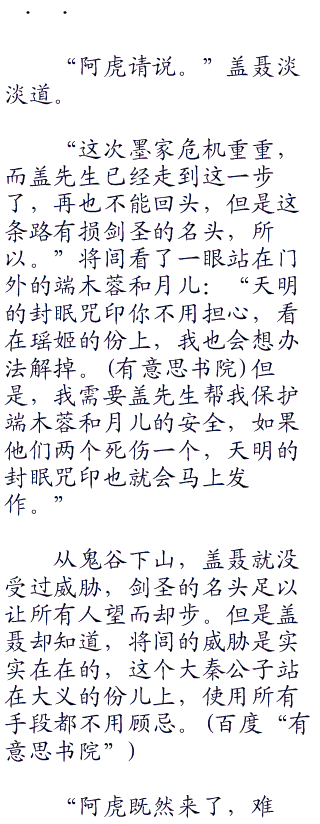 ． ．
“阿虎请说。”盖聂淡
淡道。
“这次墨家危机重重，
而盖先生已经走到这一步
了，再也不能回头，但是这
条路有损剑圣的名头，所
以。”将闾看了一眼站在门
外的端木蓉和月儿：“天明
的封眠咒印你不用担心，看
在瑶姬的份上，我也会想办
法解掉。(有意思书院)但
是，我需要盖先生帮我保护
端木蓉和月儿的安全，如果
他们两个死伤一个，天明的
封眠咒印也就会马上发
作。”
从鬼谷下山，盖聂就没
受过威胁，剑圣的名头足以
让所有人望而却步。但是盖
聂却知道，将闾的威胁是实
实在在的，这个大秦公子站
在大义的份儿上，使用所有
手段都不用顾忌。(百度“有
意思书院”)
“阿虎既然来了，难